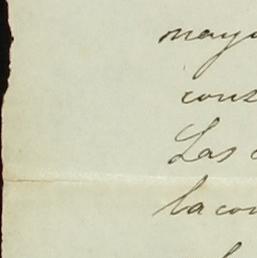 mayo
cons
Las
la con